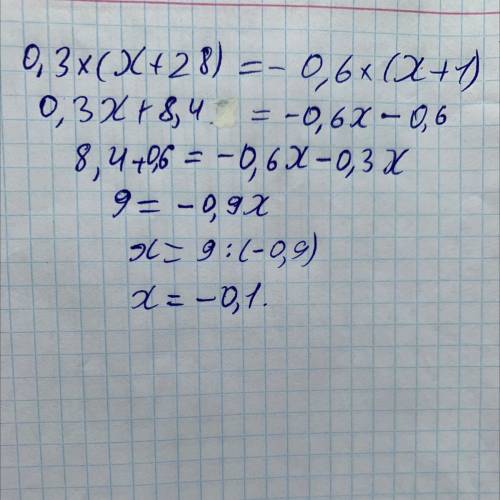 0,3×(x+28)=-0,6×(x+1)
0,3x+8,4 = -0,6x-0,6
8,4+0,6=-0,6x-0,3x
9=-0,9x
x=9:(-0,9)
x=-0,1.